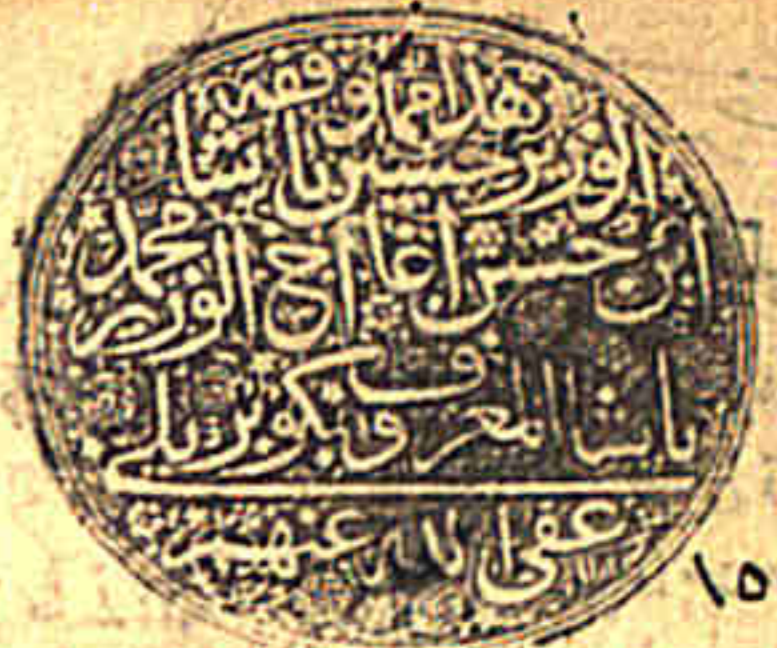 هذا مما وقفه
الوزير حسين باشا
ابن حسن اغا اخ الوزير محمد
باشا المعروف بكوبريلي
عفى الله عنهم
١٥